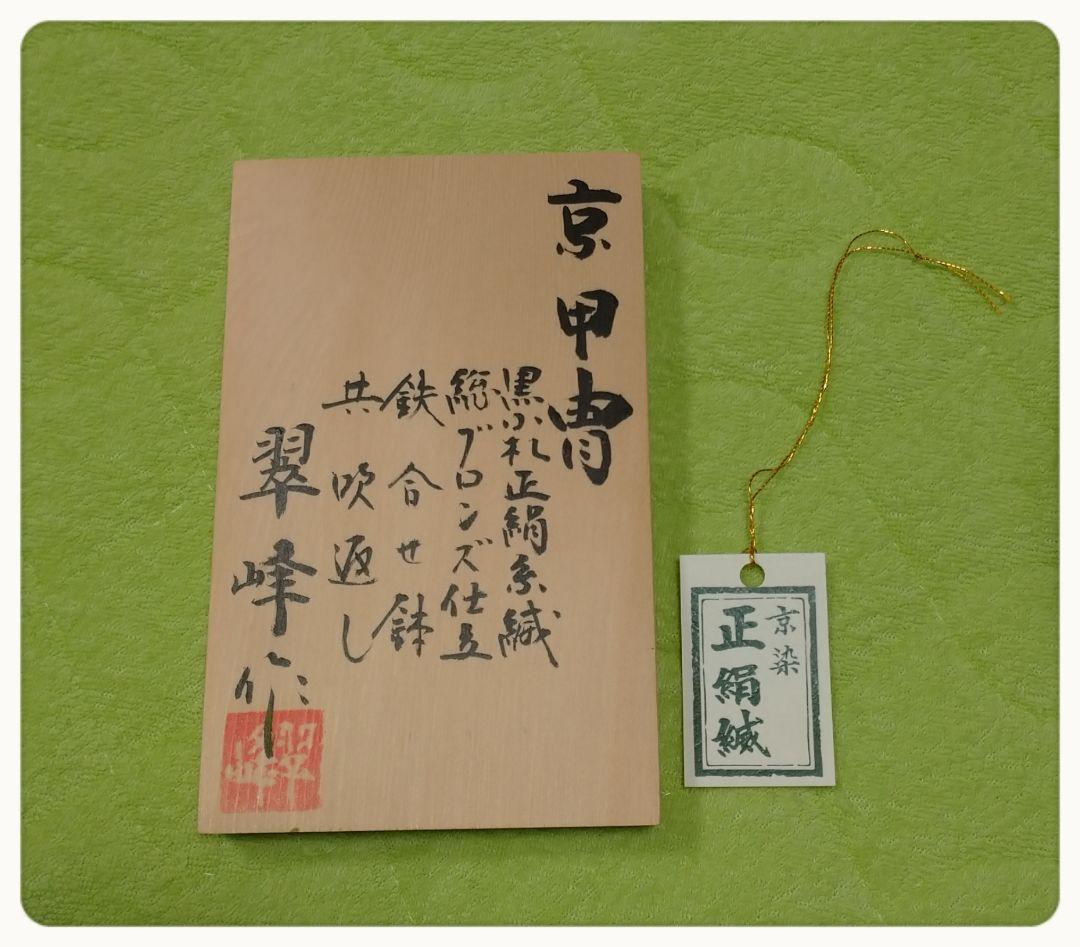 京甲冑
黒小札正絹糸縅
総ブロンズ仕立
鉄合せ鉢
共吹返し
翠峰作
翠峰
京染
正絹縅